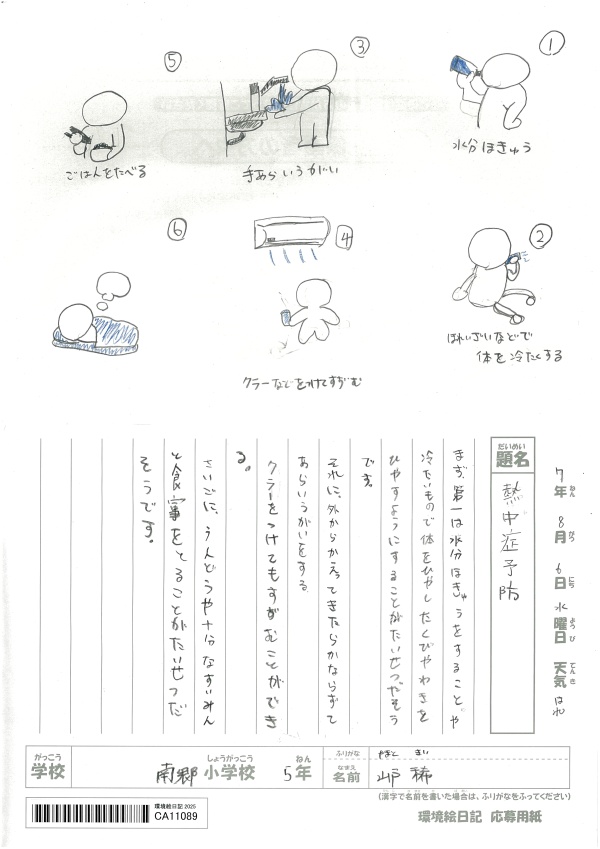 ①
水分ほきゅう
②
ほれいざいなどで
体を冷たくする
③
手あらいうがい
④
クラーなどをつけてすずむ
⑤
ごはんをたべる
⑥
7年 8月 6日 水曜日 天気 はれ
ねん がつ にち ようび てんき
だいめい
題名
熱中症予防
まず、第一は水分ほきゃうをすること。や
冷たいもので体をひやしたくびやわきを
ひやすようにすることがたいせつだそう
です。
それに、外からかえってきたらかならずて
あらいうがいをする
クラーをつけてもすずむことができ
る。
さいごに、うんどうや十分なすいみん
と食事をとることがたいせつだ
そうです。
がっこう
学校
南郷
しょうがっこう
小学校
5
ねん
年
ふりがな
なまえ
名前
やまと
まい
(漢字で名前を書いた場合は、ふりがなをふってください)
環境絵日記 2025
CA11089
環境絵日記 応募用紙